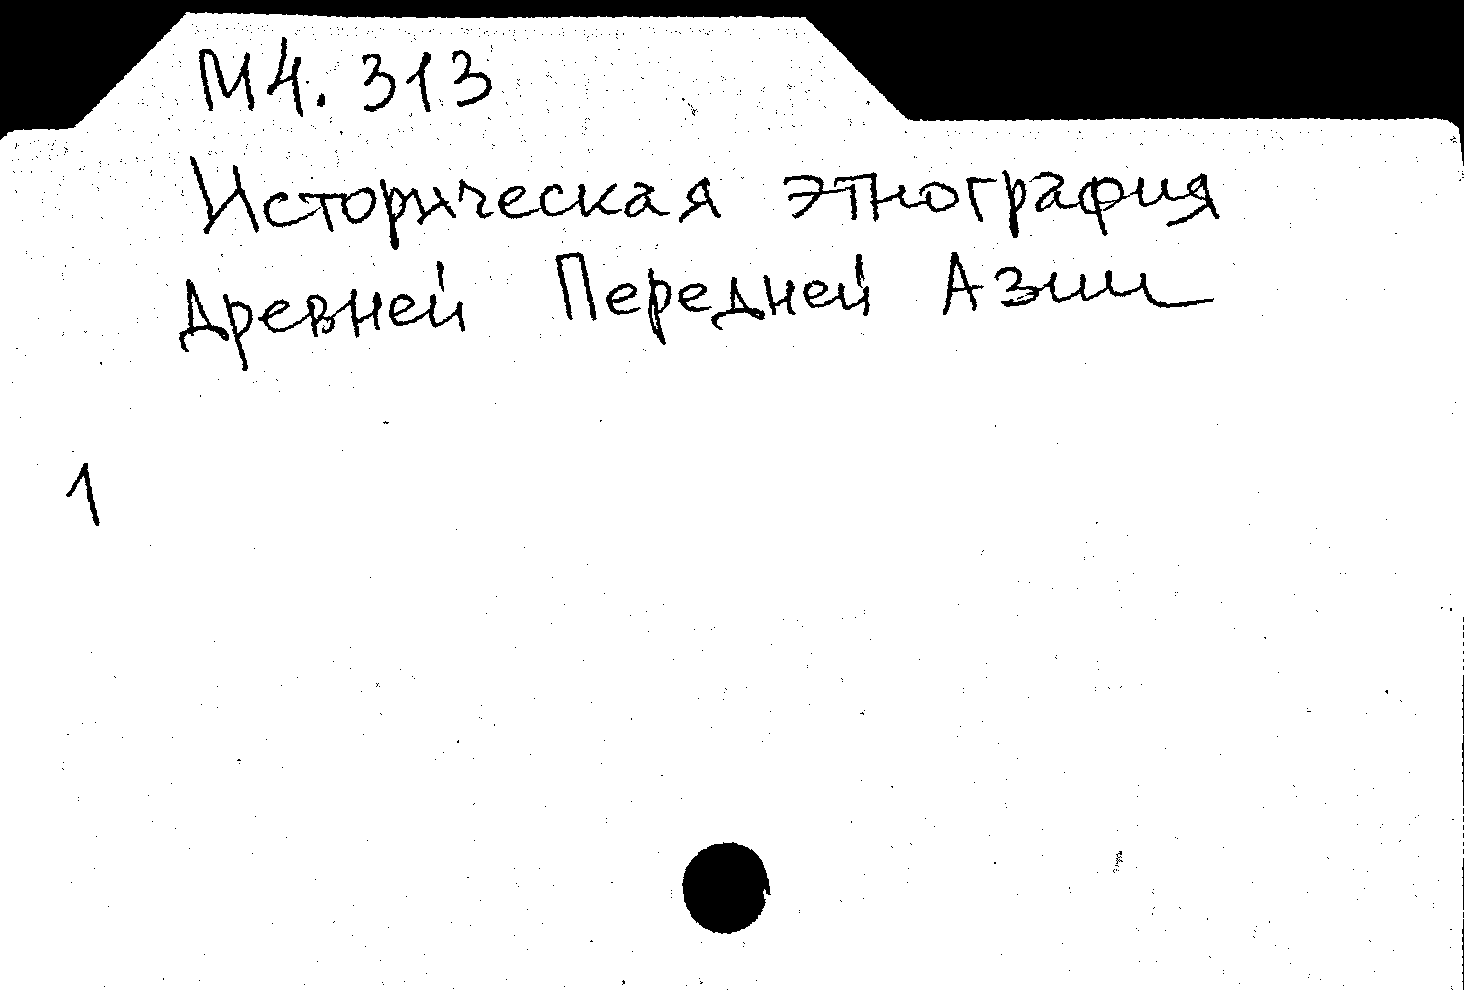 М4.313
Историческая этнография
древней Передней Азии
1